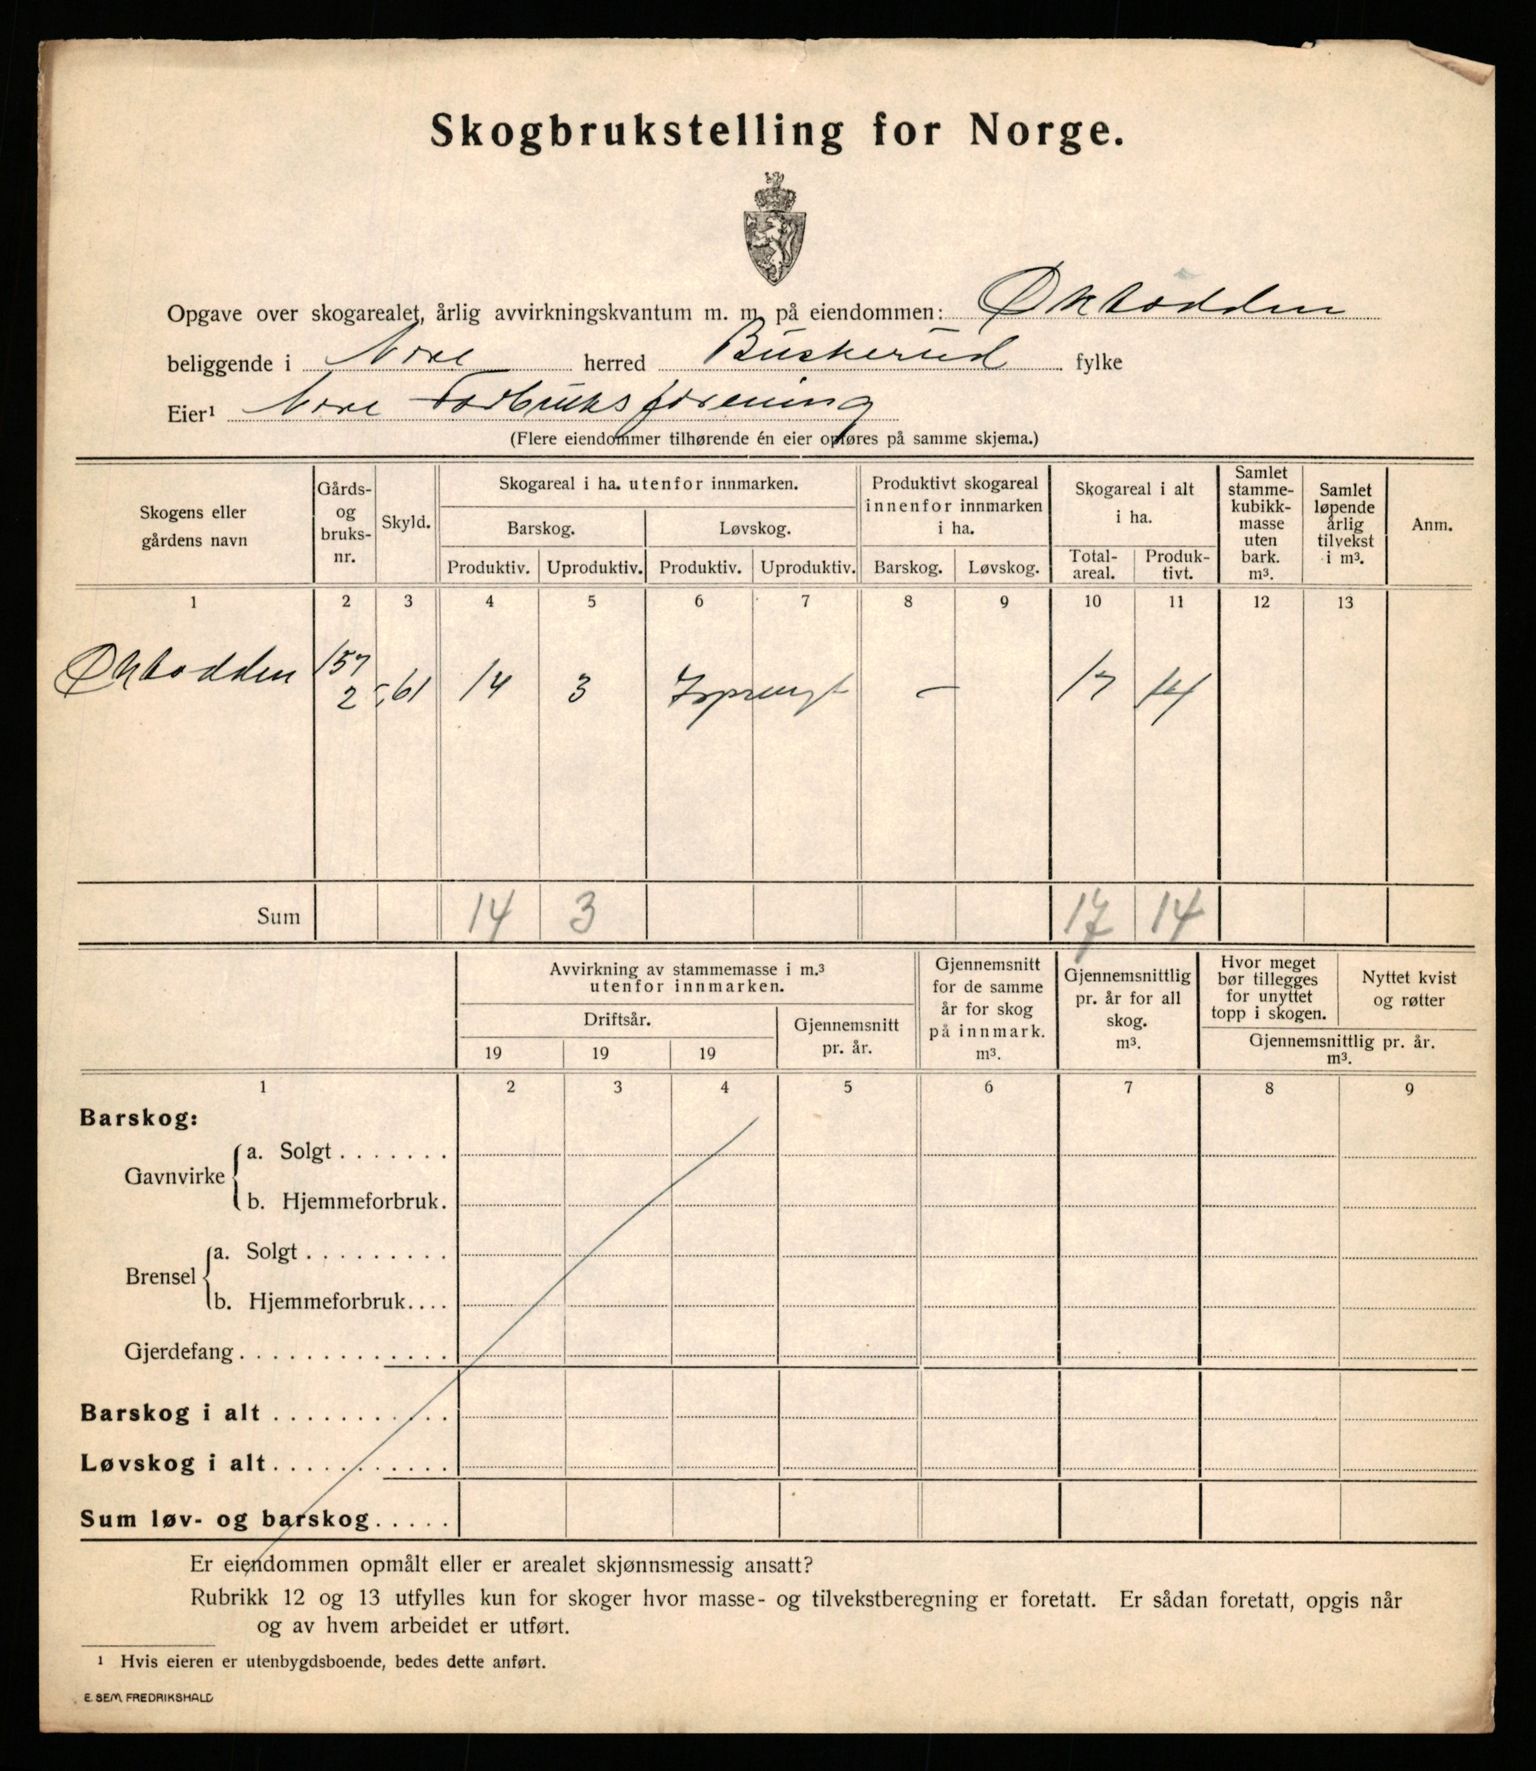 Skogbrukstelling for Norge.
Opgave over skogarealet, årlig avvirkningskvantum m. m. på eiendommen: Øktodden
beliggende i Nore herred Buskerud fylke
Eier¹ Nore Forbruksforening
(Flere eiendommer tilhørende én eier opføres på samme skjema.)
Skogens eller gårdens navn
Gårds- og bruks- nr.
Skyld.
Skogareal i ha. utenfor innmarken.
Barskog. Løvskog.
Produktiv. Uproduktiv. Produktiv. Uproduktiv.
Produktivt skogareal innenfor innmarken i ha.
Barskog. Løvskog.
Skogareal i alt i ha.
Total- areal. Produk- tivt.
Samlet stamme- kubikk- masse uten bark. m³.
Samlet løpende årlig tilvekst i m³.
Anm.
1 2 3 4 5 6 7 8 9 10 11 12 13
Øktodden 157 2 ,61 14 3 Isprengt — 17 14
Sum 14 3 17 14
Avvirkning av stammemasse i m.³ utenfor innmarken.
Driftsår.
19 19 19
Gjennemsnitt pr. år.
Gjennemsnitt for de samme år for skog på innmark. m³.
Gjennemsnittlig pr. år for all skog. m³.
Hvor meget bør tillegges for unyttet topp i skogen.
Nyttet kvist og røtter
Gjennemsnittlig pr. år. m³.
1 2 3 4 5 6 7 8 9
Barskog:
Gavnvirke
a. Solgt . . . . . . .
b. Hjemmeforbruk.
Brensel
a. Solgt . . . . . . . . .
b. Hjemmeforbruk. . . .
Gjerdefang . . . . . . . . . . . . .
Barskog i alt . . . . . . . . . . .
Løvskog i alt . . . . . . . . . . .
Sum løv- og barskog . . . . .
Er eiendommen opmålt eller er arealet skjønnsmessig ansatt?
Rubrikk 12 og 13 utfylles kun for skoger hvor masse- og tilvekstberegning er foretatt. Er sådan foretatt, opgis når
og av hvem arbeidet er utført.
¹ Hvis eieren er utenbygdsboende, bedes dette anført.
E. SEM, FREDRIKSHALD